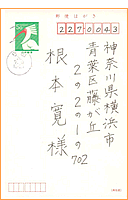 郵便はがき
2270043
神奈川県横浜市
青葉区藤が丘
2の20の10
702
根本寛様